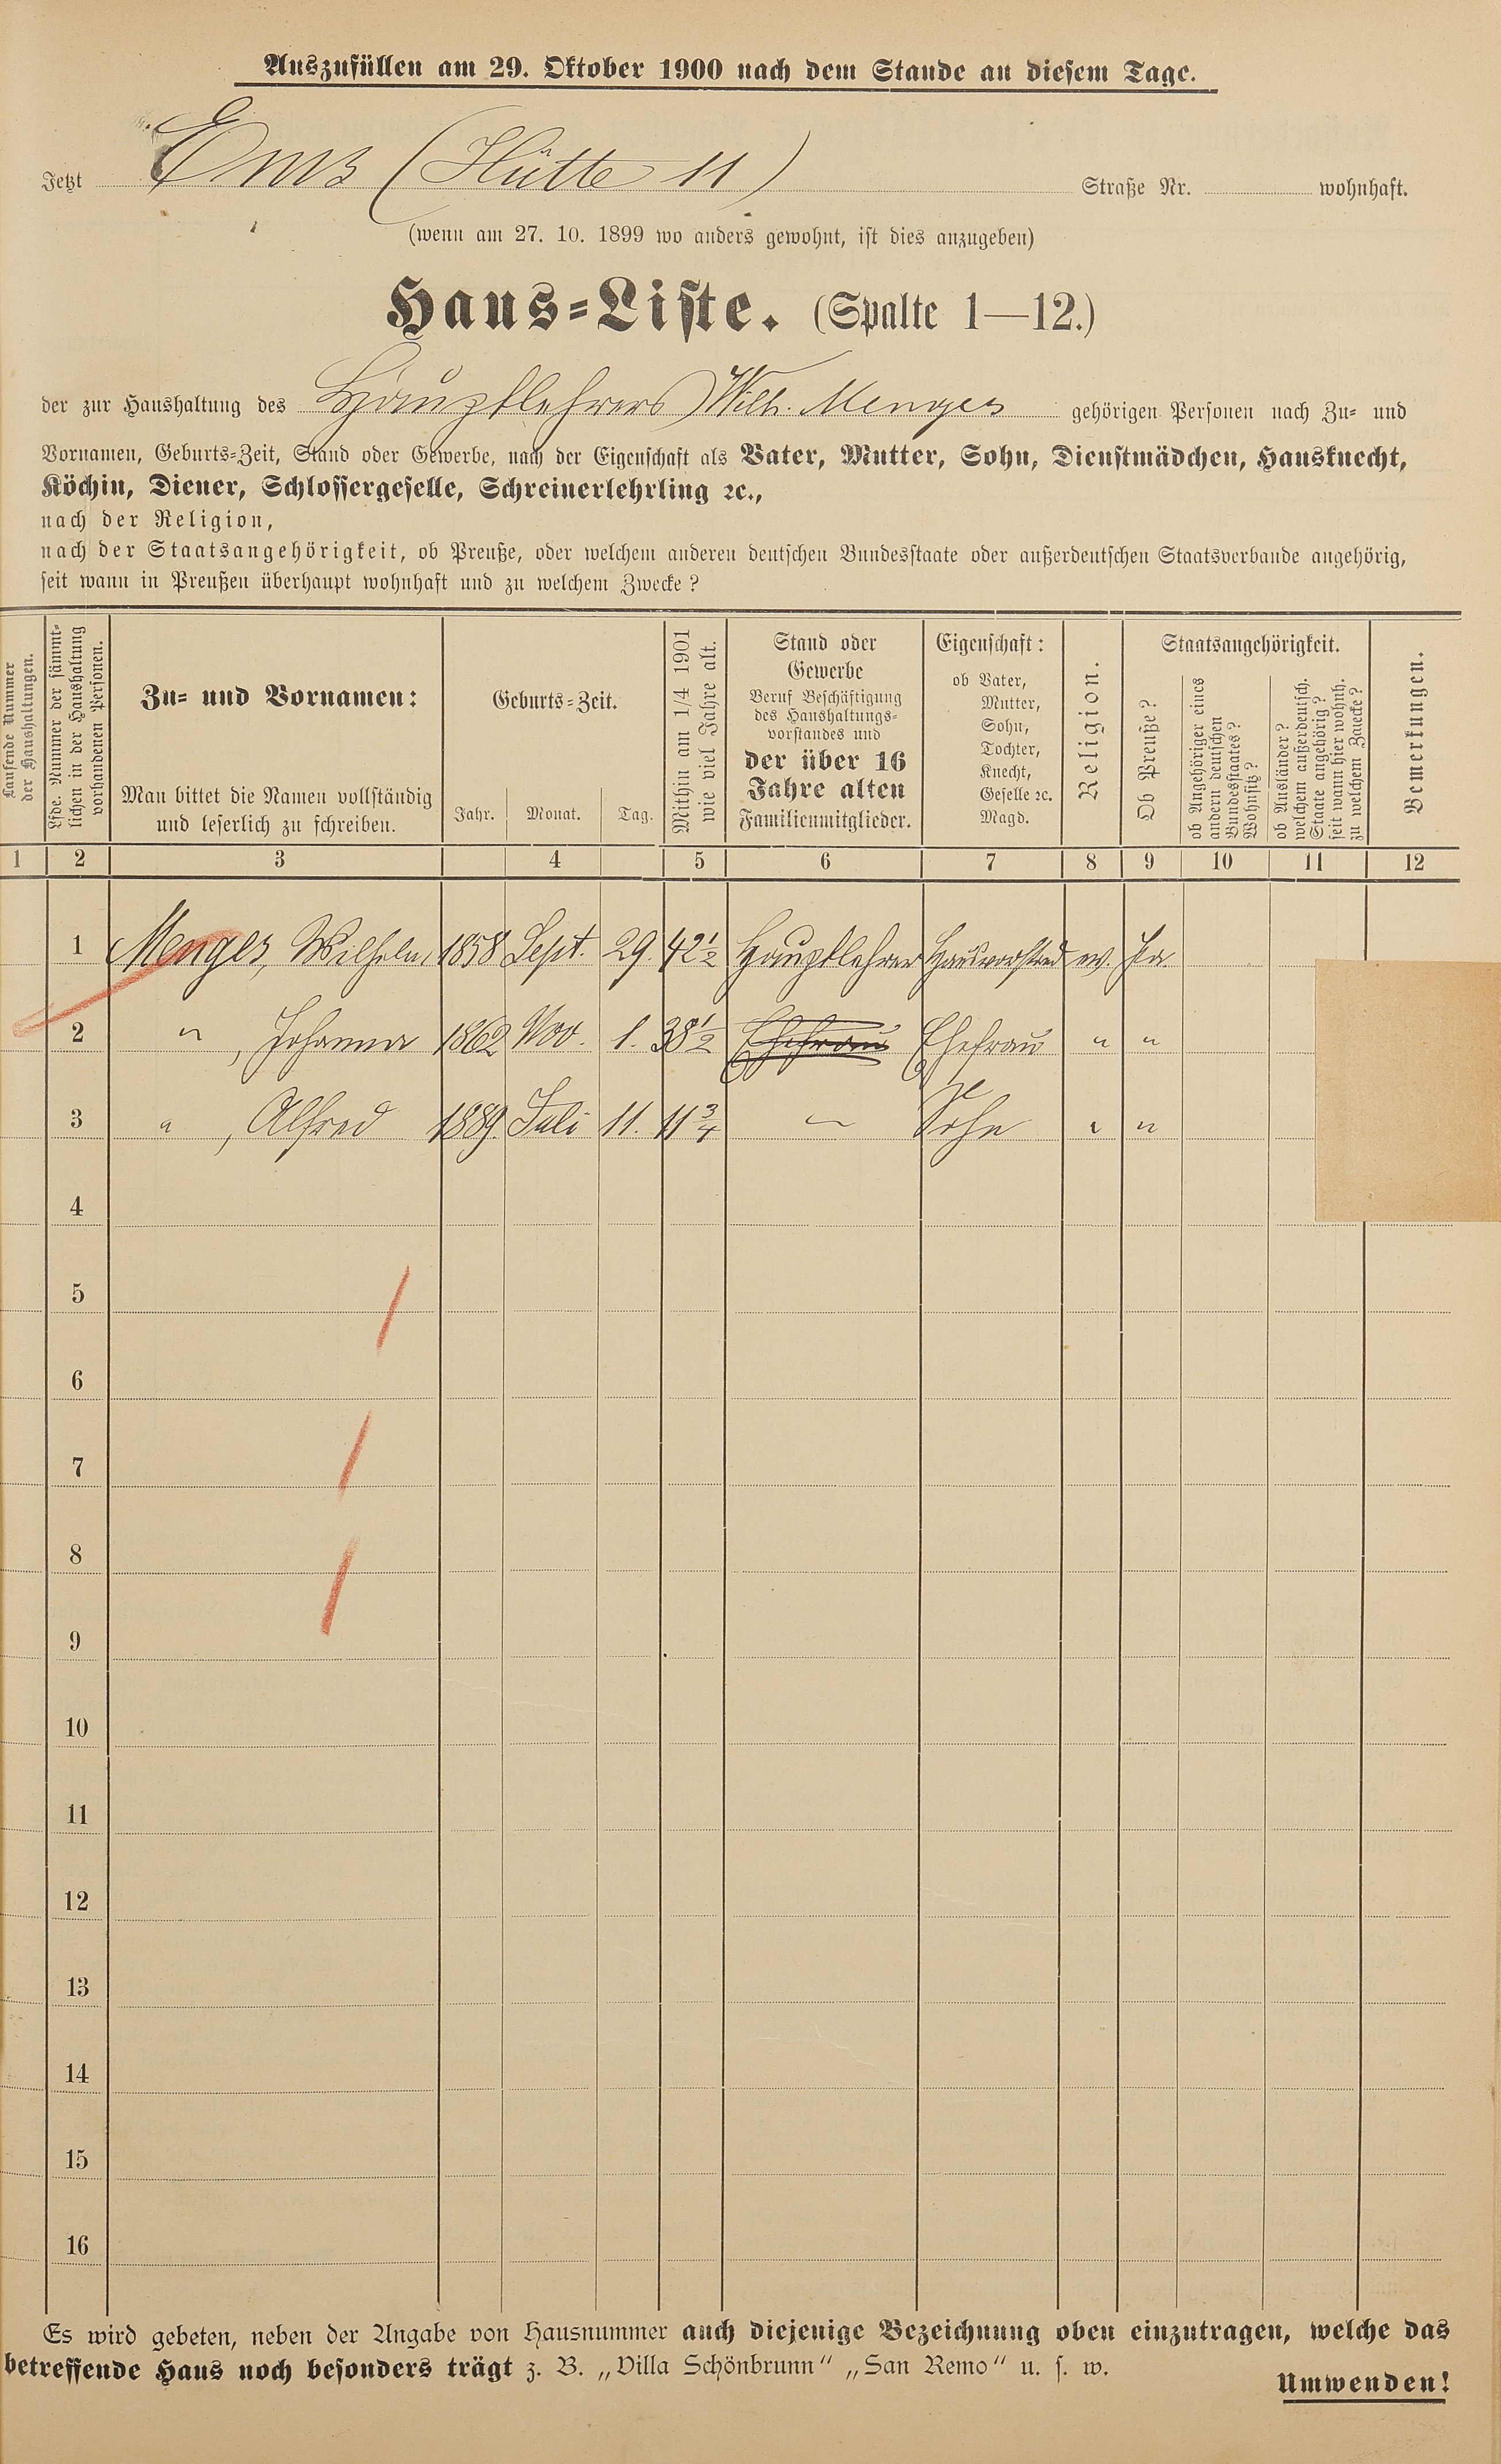 Auszufüllen am 29. Oktober 1900 nach dem Stande an diesem Tage.
Jetzt Ems (Hütte 11) Straße Nr. wohnhaft.
(wenn am 27. 10. 1899 wo anders gewohnt, ist dies anzugeben)
Haus-Liste. (Spalte 1—12.)
der zur Haushaltung des Hauptlehrers Wilh. Menges gehörigen Personen nach Zu- und
Vornamen, Geburts-Zeit, Stand oder Gewerbe, nach der Eigenschaft als Vater, Mutter, Sohn, Dienstmädchen, Hausknecht,
Köchin, Diener, Schlossergeselle, Schreinerlehrling ꝛc.,
nach der Religion,
nach der Staatsangehörigkeit, ob Preuße, oder welchem anderen deutschen Bundesstaate oder außerdeutschen Staatsverbande angehörig,
seit wann in Preußen überhaupt wohnhaft und zu welchem Zwecke?
Laufende Nummer
der Haushaltungen.
Lfde. Nummer der sämmt-
lichen in der Haushaltung
vorhandenen Personen.
Zu- und Vornamen:
Man bittet die Namen vollständig
und leserlich zu schreiben.
Geburts-Zeit.
Jahr. Monat. Tag.
Mithin am 1/4 1901
wie viel Jahre alt.
Stand oder
Gewerbe
Beruf Beschäftigung
des Haushaltungs-
vorstandes und
der über 16
Jahre alten
Familienmitglieder.
Eigenschaft:
ob Vater,
Mutter,
Sohn,
Tochter,
Knecht,
Geselle ꝛc.
Magd.
Religion.
Staatsangehörigkeit.
Ob Preuße?
ob Angehöriger eines
andern deutschen
Bundesstaates?
Wohnsitz?
ob Ausländer?
welchem außerdeutsch.
Staate angehörig?
seit wann hier wohnh.
zu welchem Zwecke?
Bemerkungen.
1 2 3 4 5 6 7 8 9 10 11 12
1 Menges, Wilhelm, 1858 Sept. 29. 42 1/2 Hauptlehrer Hausvorstand ev. Ja.
2 " , Johanna 1862 Nov. 1. 38 1/2 Ehefrau Ehefrau " "
3 " , Alfred 1889. Juli 11. 11 3/4 — Sohn " "
4
5
6
7
8
9
10
11
12
13
14
15
16
Es wird gebeten, neben der Angabe von Hausnummer auch diejenige Bezeichnung oben einzutragen, welche das
betreffende Haus noch besonders trägt z. B. „Villa Schönbrunn“ „San Remo“ u. s. w.
Umwenden!